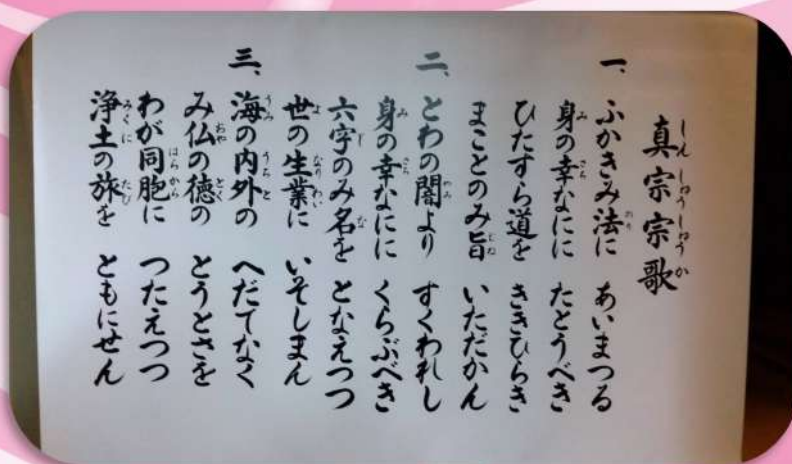 真宗宗歌
一、ふかきみ法に あいまつる
身の幸なにに たとうべき
ひたすら道を ききひらき
まことのみ旨 いただかん
二、とわの闇より すくわれし
身の幸なにに くらぶべき
六字のみ名を となえつつ
世の生業に いそしまん
三、海の内外の へだてなく
み仏の徳の とうとさを
わが同胞に つたえつつ
浄土の旅を ともにせん